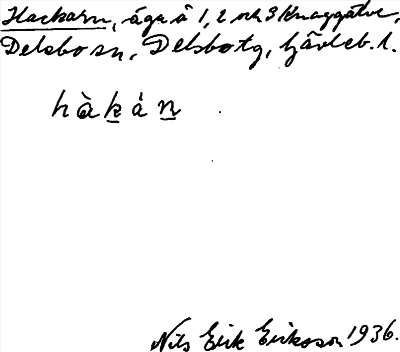 Hackarn, äga å 1, 2 och 3 Knaggälve,
Delsbo sn, Delsbo tg, Gävleb. l.
hàkán
Nils Erik Eriksson 1936.